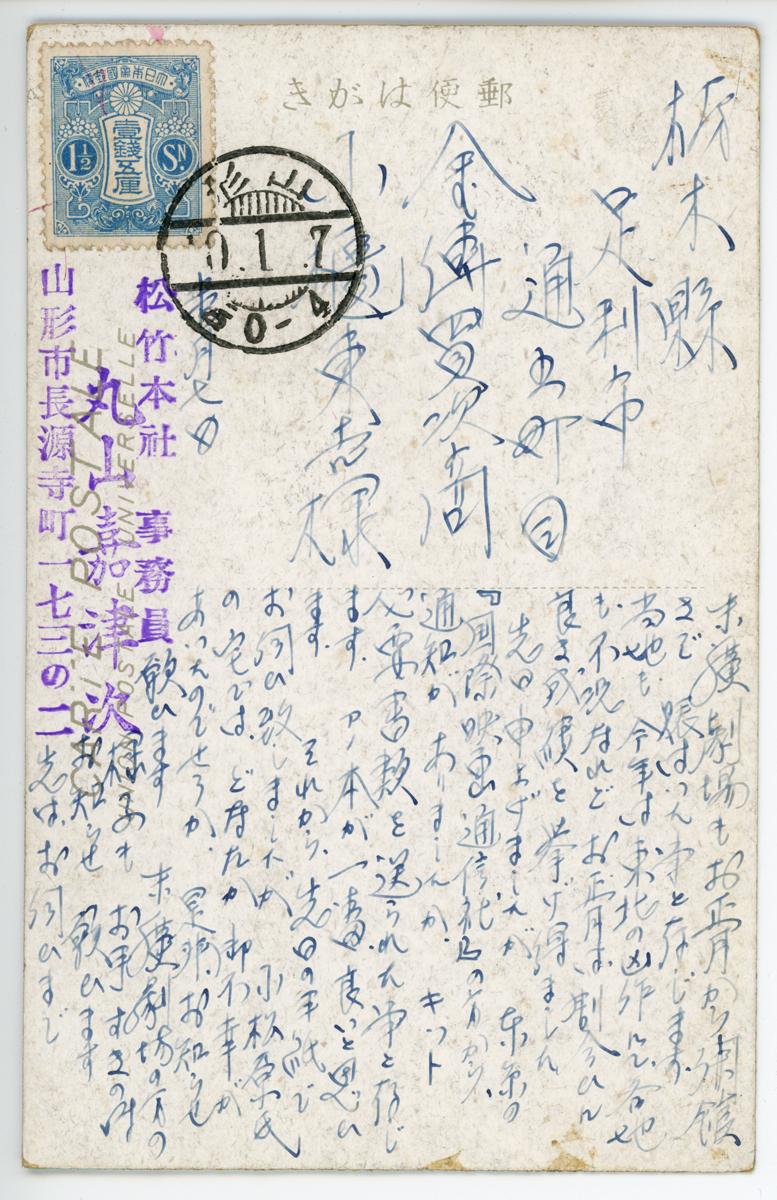 郵便はがき
大日本帝國郵便
壹錢五厘
1½ SN.
10.1.7
0-4
栃木縣
足利市
通五丁目
様
一月七日
松竹本社 事務員
丸山嘉津次
山形市長源寺町一七三の二
CARTE POSTALE
UNION POSTALE UNIVERSELLE
末廣劇場もお正月から満館
きで賑はつた事と存じます
当地も今年は東北の凶作にて各地
も不況なれどお正月は割合に
良き成績を挙げ得ました
先日申上げましたが 東京の
『国際映画通信社』の方から
通知がありましたか、キット
必要書類を送られた事と存じ
ます、アノ本が一番良いと思ひ
ます、それから、先日の手紙で
お伺ひ致しましたが 小松原氏
の宅では、どなたか御不幸が
あつたのでせうか、是非お知らせ
願ひます 末廣劇場の方の
様子も お手すきの時
お知らせ 願ひます
先は、お伺ひまで